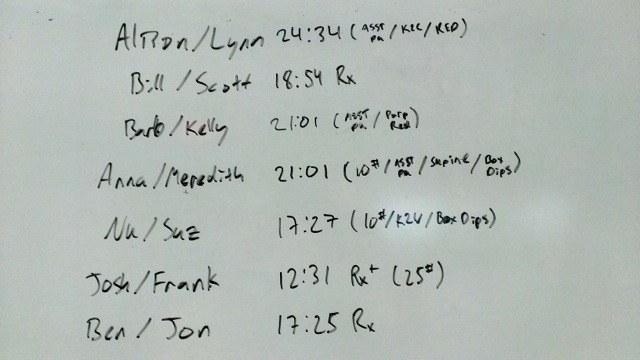 Allison/Lynn 24:34 (Asst pu/K2E/RED)
Bill/Scott 18:54 Rx
Barb/Kelly 21:01 (Asst pu/Purp Red)
Anna/Meredith 21:01 (10#/Asst pu/Supine/Box Dips)
Nu/Suz 17:27 (10#/Box Dips)
Josh/Frank 12:31 Rx+ (25#)
Ben/Jon 17:25 Rx